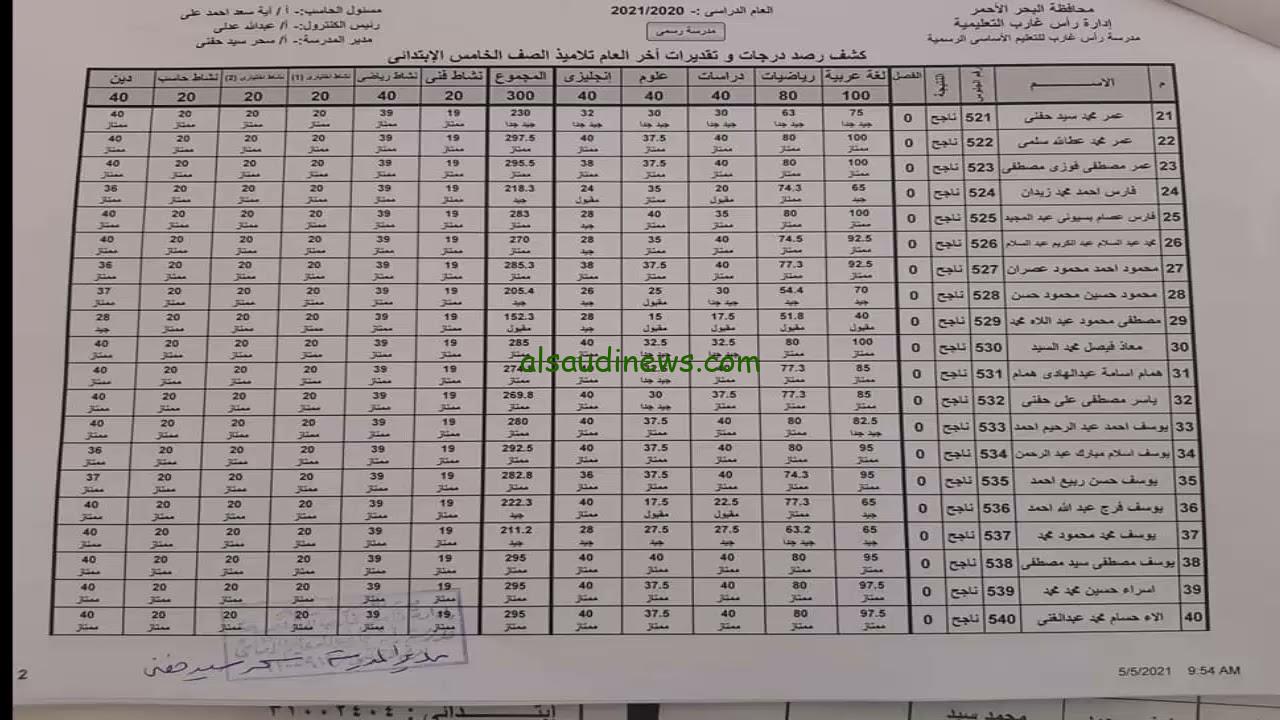 محافظة البحر الأحمر
إدارة رأس غارب التعليمية
مدرسة رأس غارب للتعليم الأساسى الرسمية
العام الدراسى :- 2021/2020
مدرسة رسمى
مسئول الحاسب:- أ / آية سعد احمد على
رئيس الكنترول:- أ/ عبدالله عدلى
مدير المدرسة:- أ/ سحر سيد حفنى
كشف رصد درجات و تقديرات أخر العام تلاميذ الصف الخامس الإبتدائى
م الاســـم رقم الجلوس النتيجة الفصل لغة عربية رياضيات دراسات علوم إنجليزى المجموع نشاط فنى نشاط رياضى نشاط اختيارى (1) نشاط اختيارى (2) نشاط حاسب دين
100 80 40 40 40 300 20 40 20 20 20 40
21 عمر محمد سيد حفنى 521 ناجح 0 75 63 30 30 32 230 19 39 20 20 20 40
جيد جدا جيد جدا جيد جدا جيد جدا جيد جدا جيد جدا ممتاز ممتاز ممتاز ممتاز ممتاز ممتاز
22 عمر محمد عطالله سلمى 522 ناجح 0 100 80 40 37.5 40 297.5 19 39 20 20 20 40
ممتاز ممتاز ممتاز ممتاز ممتاز ممتاز ممتاز ممتاز ممتاز ممتاز ممتاز ممتاز
23 عمر مصطفى فوزى مصطفى 523 ناجح 0 100 80 40 37.5 38 295.5 19 39 20 20 20 40
ممتاز ممتاز ممتاز ممتاز ممتاز ممتاز ممتاز ممتاز ممتاز ممتاز ممتاز ممتاز
24 فارس احمد محمد زيدان 524 ناجح 0 65 74.3 20 35 24 218.3 19 39 20 20 20 36
جيد ممتاز مقبول ممتاز مقبول جيد ممتاز ممتاز ممتاز ممتاز ممتاز ممتاز
25 فارس عصام بسيونى عبد المجيد 525 ناجح 0 100 80 35 40 28 283 19 39 20 20 20 40
ممتاز ممتاز ممتاز ممتاز جيد ممتاز ممتاز ممتاز ممتاز ممتاز ممتاز ممتاز
26 محمد عبد السلام عبد الكريم عبد السلام 526 ناجح 0 92.5 74.5 40 35 28 270 19 39 20 20 20 40
ممتاز ممتاز ممتاز ممتاز جيد ممتاز ممتاز ممتاز ممتاز ممتاز ممتاز ممتاز
27 محمود احمد محمود عصران 527 ناجح 0 92.5 77.3 40 37.5 38 285.3 19 39 20 20 20 36
ممتاز ممتاز ممتاز ممتاز ممتاز ممتاز ممتاز ممتاز ممتاز ممتاز ممتاز ممتاز
28 محمود حسين محمود حسن 528 ناجح 0 70 54.4 30 25 26 205.4 19 39 20 20 20 37
جيد جيد جيد جدا مقبول جيد جيد ممتاز ممتاز ممتاز ممتاز ممتاز ممتاز
29 مصطفى محمود عبد اللاه محمد 529 ناجح 0 40 51.8 17.5 15 28 152.3 19 39 20 20 20 28
مقبول جيد مقبول مقبول جيد مقبول ممتاز ممتاز ممتاز ممتاز ممتاز جيد
30 معاذ فيصل محمد السيد 530 ناجح 0 100 80 32.5 32.5 40 285 19 39 20 20 20 40
ممتاز ممتاز ممتاز ممتاز ممتاز ممتاز ممتاز ممتاز
alsaudinews.com
31 همام اسامة عبدالهادى همام 531 ناجح 0 85 77.3 40 40 19 39 20 20 20 40
ممتاز ممتاز ممتاز جيد جدا ممتاز ممتاز ممتاز ممتاز ممتاز ممتاز ممتاز ممتاز
32 ياسر مصطفى على حفنى 532 ناجح 0 85 77.3 37.5 30 40 269.8 19 39 20 20 20 40
ممتاز ممتاز ممتاز جيد جدا ممتاز ممتاز ممتاز ممتاز ممتاز ممتاز ممتاز ممتاز
33 يوسف احمد عبد الرحيم احمد 533 ناجح 0 82.5 80 40 37.5 40 280 19 39 20 20 20 40
جيد جدا ممتاز ممتاز ممتاز ممتاز ممتاز ممتاز ممتاز ممتاز ممتاز ممتاز ممتاز
34 يوسف اسلام مبارك عبد الرحمن 534 ناجح 0 95 80 40 37.5 40 292.5 19 39 20 20 20 36
ممتاز ممتاز ممتاز ممتاز ممتاز ممتاز ممتاز ممتاز ممتاز ممتاز ممتاز ممتاز
35 يوسف حسن ربيع احمد 535 ناجح 0 95 74.3 40 37.5 36 282.8 19 39 20 20 20 37
ممتاز ممتاز ممتاز ممتاز ممتاز ممتاز ممتاز ممتاز ممتاز ممتاز ممتاز ممتاز
36 يوسف فرج عبد الله احمد 536 ناجح 0 65 77.3 22.5 17.5 40 222.3 19 39 20 20 20 40
جيد ممتاز مقبول مقبول ممتاز جيد ممتاز ممتاز ممتاز ممتاز ممتاز ممتاز
37 يوسف محمد محمود محمد 537 ناجح 0 65 63.2 27.5 27.5 28 211.2 19 39 20 20 20 40
جيد جيد جدا جيد جيد جيد جيد ممتاز ممتاز ممتاز ممتاز ممتاز ممتاز
38 يوسف مصطفى سيد مصطفى 538 ناجح 0 95 80 40 40 40 295 19 39 20 20 20 40
ممتاز ممتاز ممتاز ممتاز ممتاز ممتاز ممتاز ممتاز ممتاز ممتاز ممتاز ممتاز
39 اسراء حسين محمد محمد 539 ناجح 0 97.5 80 40 37.5 40 295 19 39 20 20 20 40
ممتاز ممتاز ممتاز ممتاز ممتاز ممتاز ممتاز ممتاز ممتاز ممتاز ممتاز ممتاز
40 الاء حسام محمد عبدالغنى 540 ناجح 0 97.5 80 40 37.5 40 295 19 39 20 20 20 40
ممتاز ممتاز ممتاز ممتاز ممتاز ممتاز ممتاز ممتاز ممتاز ممتاز ممتاز ممتاز
مدير المدرسة سحر سيد حفنى
5/5/2021 9:54 AM
2
محمد سيد